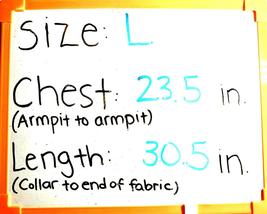 Size: L
Chest: 23.5 in.
(Armpit to armpit)
Length: 30.5 in.
(Collar to end of fabric)